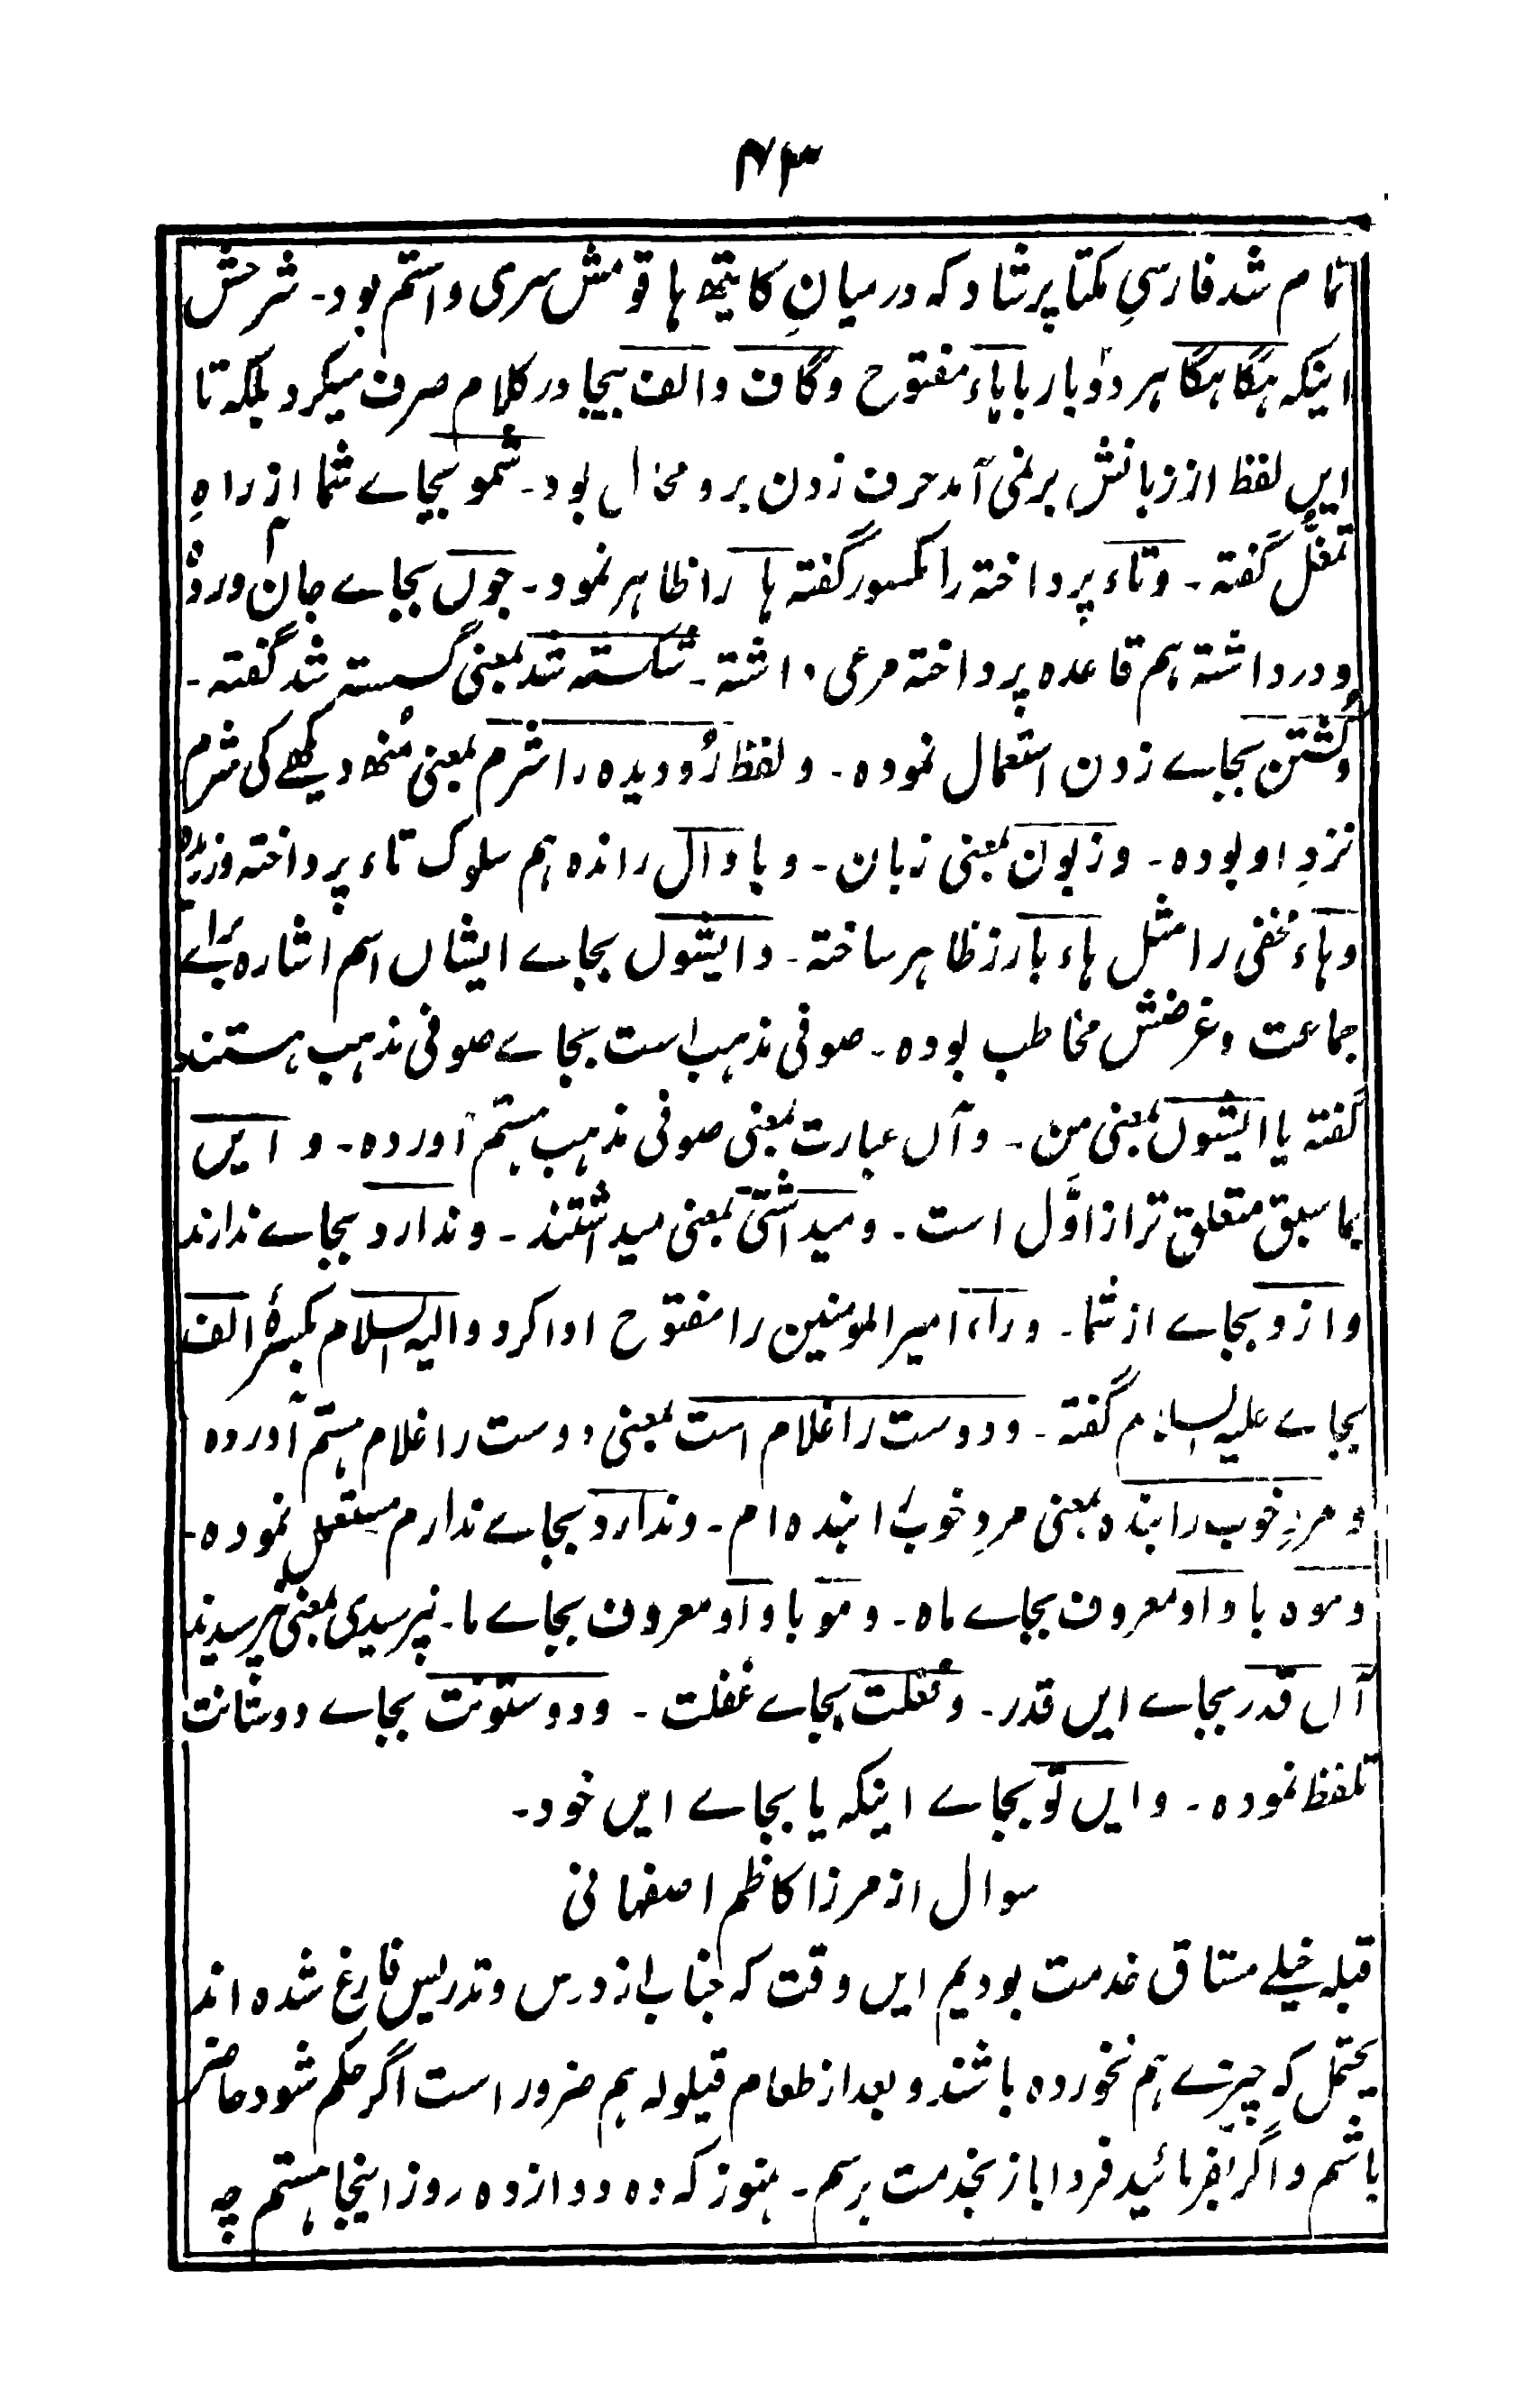 ۴۳
تمام شد فارسیِ مکتا پرشاد که درمیانِ کایتھ ها قومش سری واستم بود۔ شرحش
اینکه هگا هگا هر دو بار با هاء مفتوح و گاف و الف بیجا در کلام صرف میکرد بلکه تا
ایں لفظ از زبانش بر نمی آمد حرف زدن برو محال بود۔ شمو بجاے شما از راهِ
تمغّل گفته۔ و تاء پرداخته را مکسور گفته ها را ظاهر نمود۔ جوں بجاے جان آورده
و در داشته هم قاعده پرداخته مرعی داشته۔ شکسته شد بمعنی گسسته شد گفته۔
و کُشتن بجاے زدن استعمال نموده۔ و لفظ رُو دیده را شرم بمعنی مُنھ دیکھے کی شرم
نزدِ او بوده۔ و زبون بمعنی زبان۔ و با دال رانده هم سلوک تاء پرداخته ورزیده
و هاء مخفی را مثل هاء بارز ظاهر ساخته۔ و ایشوں بجاے ایشاں اسم اشاره براے
جماعت و غرضش مخاطب بوده۔ صوفی مذهب است بجاے صوفی مذهب هستند
گفته یا ایشوں بمعنی من۔ و آں عبارت بمعنی صوفی مذهب هستم آورده۔ و ایں
بما سبق متعلق تر از اوّل است۔ و میداشتی بمعنی میداشتند۔ و ندارد بجاے ندارند
و ازو بجاے از شما۔ و راء امیرالمومنین را مفتوح ادا کرد و الیه السلام بکسرهٔ الف
بجاے علیه السلام گفته۔ و دوست را غلام است بمعنی دوست را غلام هستم آورده
و مردِ خوب را بنده بمعنی مردِ خوب را بنده ام۔ و ندارد بجاے ندارم مستعمل نموده۔
و موه با واو معروف بجاے ماه۔ و مو با واو معروف بجاے ما۔ نپرسیدی بمعنی نپرسیدند
آں قدر بجاے ایں قدر۔ و غُفلت بجاے غفلت۔ و دوستونت بجاے دوستانت
تلفظ نموده۔ و ایں تو بجاے اینکه یا بجاے ایں خود۔
سوال از مرزا کاظم اصفهانی
قبله خیلے مشتاق خدمت بودیم ایں وقت که جناب از درس و تدریس فارغ شده اند
یحتمل که چیزے هم نخورده باشند و بعد از طعام قیلوله هم ضرور است اگر حکم شود حاضر
باشم و اگر بفرمائید فردا باز بخدمت برسم۔ هنوز که ده دوازده روز اینجا هستم چه